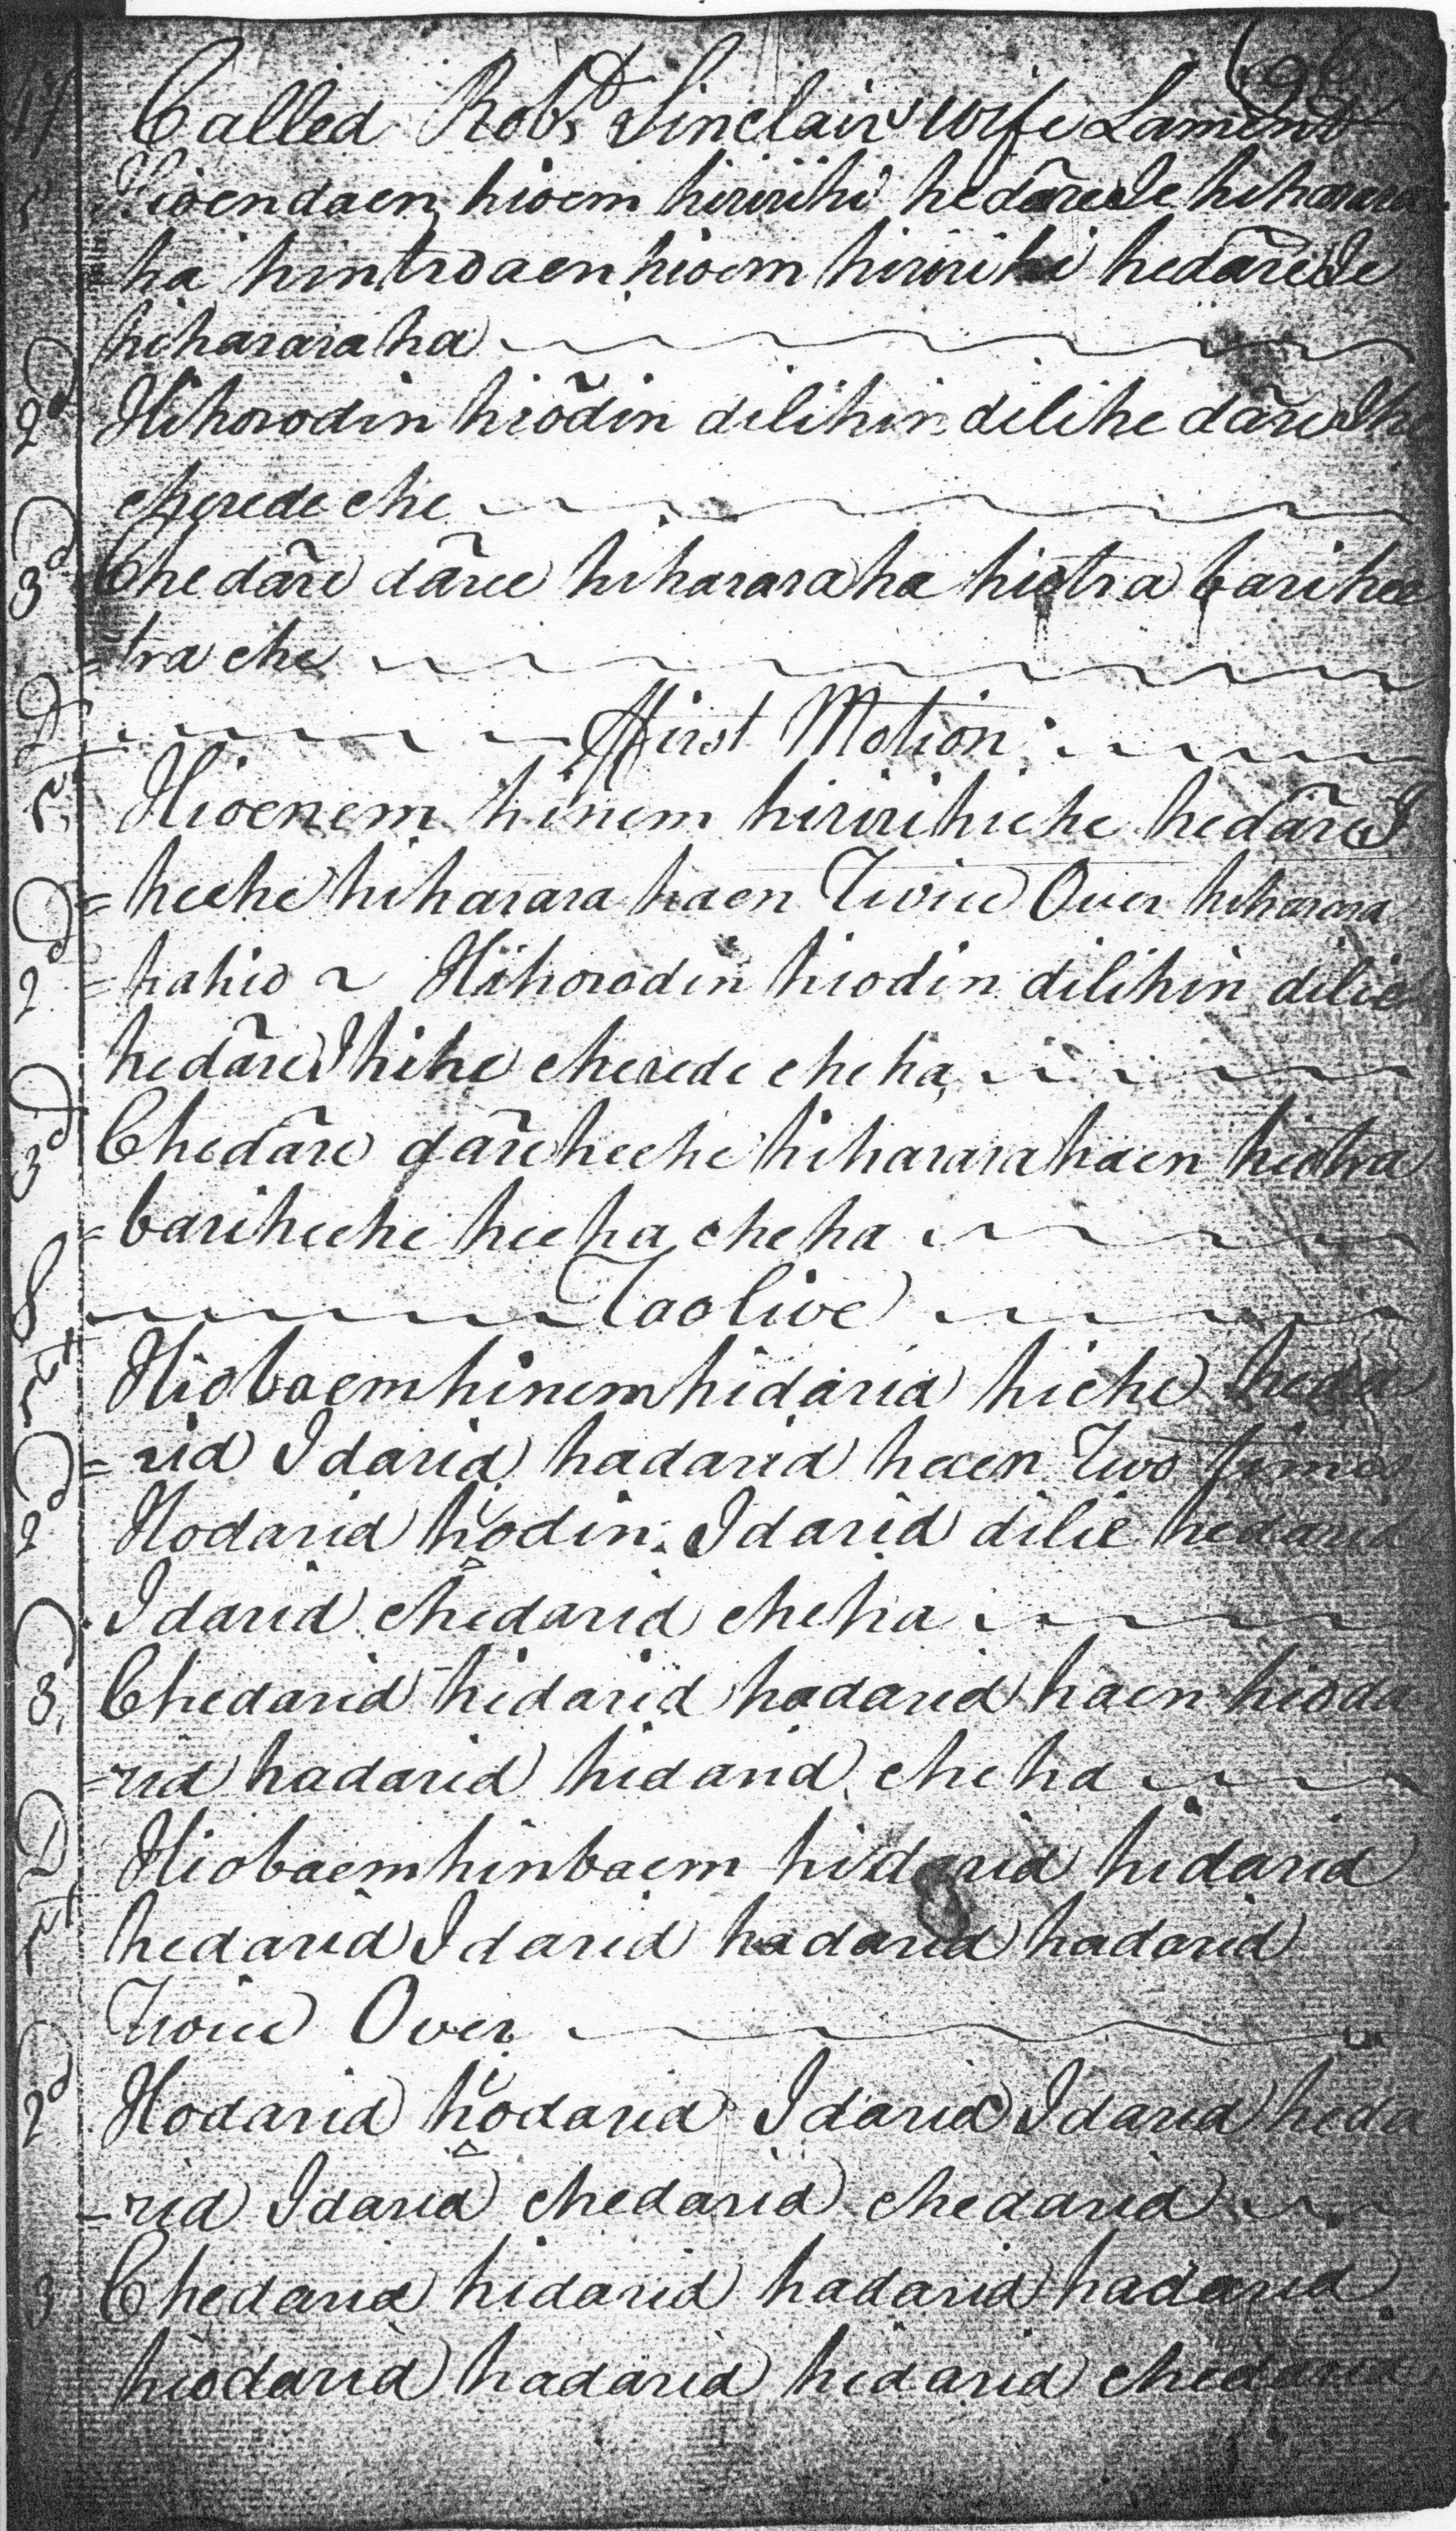 17 Called Robt Sinclairs wife Lament
1 Hioendaen hioem hiririhi hedāreIe hiharara
=ha hintrodaen hioem hiririhi hedāreIe
hihararaha
2d Hihorodin hiōdin dilihin dilihe dāreIhe
cherede che
3d Chedāre dāree hihararaha hiotra barihee
=tra che
D First Motion
1st Hioenem hinem hiririhiche hedāreI
=heche hiharara haen Twice Over hiharara
2d =hahio ~ Hihorodin hiodin dilihin dilie
hedāreIhihe cherede che ha
3d Chedāre dāreheche hihararahaen hiotra
=bariheche hee ha che ha
S Taolive
1st Hiobaemhinemhidarid hiche heda
=rid Idarid hadarid haen Two times
2d Hodarid hodin Idarid dilie hedarid
Idarid chedarid cheha
3d Chedarid hidarid hadarid haen hioda
=rid hadarid hidarid che ha
D 1st Hiobaemhinbaem hidarid hidarid
hedarid Idarid hadarid hadarid
Twice Over
2d Hodarid hodarid Idarid Idarid heda
=rid Idarid chedarid chedarid
3 Chedarid hidarid hadarid hadarid
hiodarid hadarid hidarid chedarid